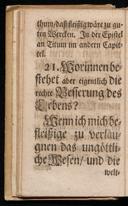 thum / daß fleißig wäre zu gu-
ten Wercken. In der Epistel
an Titum im andern Capit-
tel.
21. Worinnen be-
stehet aber eigentlich die
rechte Besserung des
Lebens?
Wenn ich mich be-
fleißige zu verläug-
nen das ungöttli-
che Wesen / und die
welt-